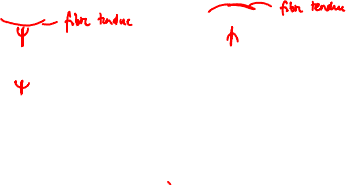 fibre tendue
fibre tendue